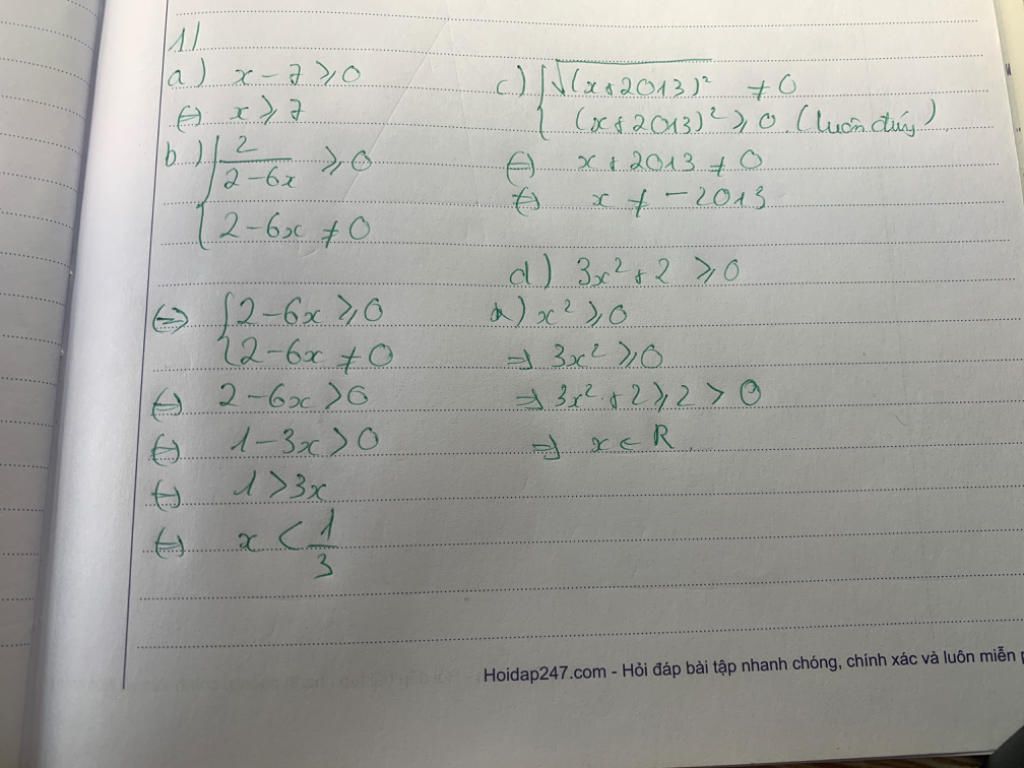 1)
a) x - 7 ≥ 0
⇔ x ≥ 7
b) { 2/(2-6x) ≥ 0
2-6x ≠ 0
⇔ { 2-6x ≥ 0
2-6x ≠ 0
⇔ 2-6x > 0
⇔ 1-3x > 0
⇔ 1 > 3x
⇔ x < 1/3
c) { √(x+2013)² ≠ 0
(x+2013)² ≥ 0. (luôn đúng)
⇔ x + 2013 ≠ 0
⇔ x ≠ -2013
d) 3x² + 2 ≥ 0
x² ≥ 0
⇒ 3x² ≥ 0
⇒ 3x² + 2 ≥ 2 > 0
⇒ x ∈ R.
Hoidap247.com - Hỏi đáp bài tập nhanh chóng, chính xác và luôn miễn